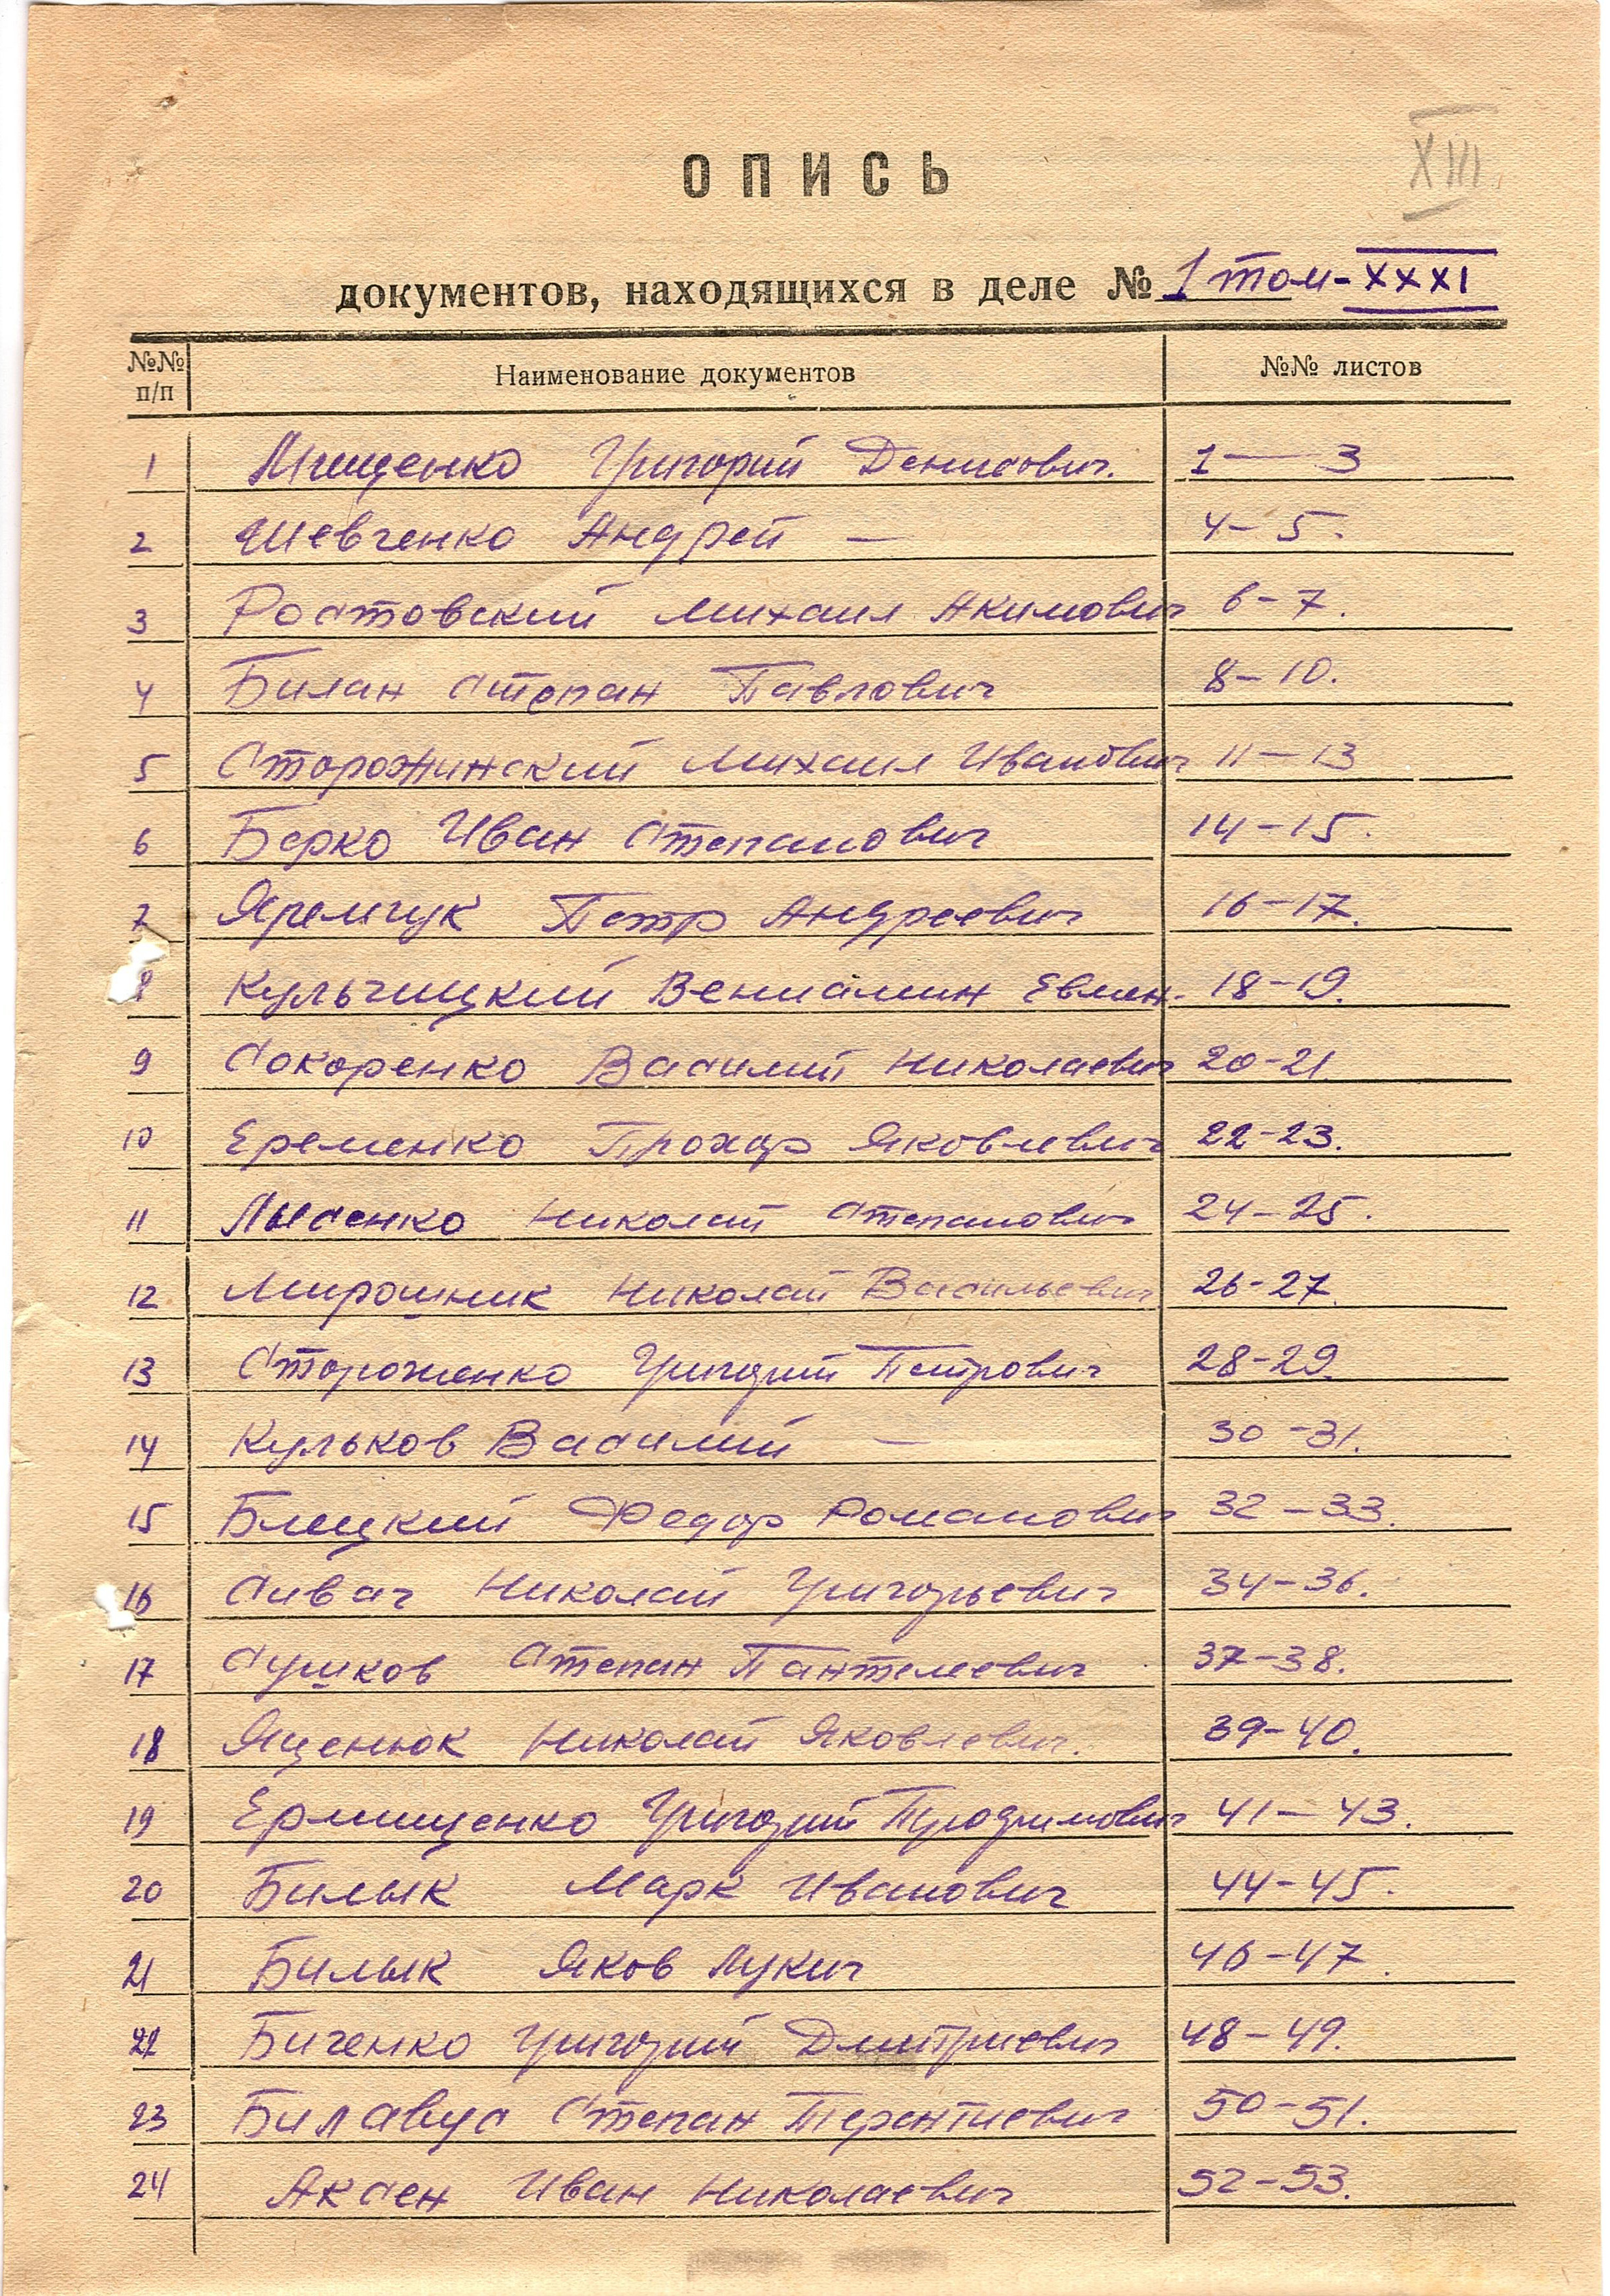 XIII
ОПИСЬ
документов, находящихся в деле № 1 том-XXXI
№№ п/п Наименование документов №№ листов
1 Мищенко Григорий Денисович. 1 — 3
2 Шевченко Андрей — 4-5.
3 Ростовский Михаил Акимович 6-7.
4 Билан Степан Павлович 8-10.
5 Сторожинский Михаил Иванович 11-13
6 Берко Иван Степанович 14-15.
7 Яремчук Петр Андреевич 16-17.
8 Кульчицкий Вениамин Евмен. 18-19.
9 Сокоренко Василий Николаевич 20-21
10 Еременко Прохор Яковлевич 22-23.
11 Лысенко Николай Степанович 24-25.
12 Мирошник Николай Васильевич 26-27.
13 Стороженко Григорий Петрович 28-29.
14 Кульков Василий — 30-31.
15 Блицкий Федор Романович 32-33.
16 Сивач Николай Григорьевич 34-36.
17 Сушков Степан Пантелеевич 37-38.
18 Яценюк Николай Яковлевич. 39-40.
19 Ермищенко Григорий 41-43.
20 Билык Марк Иванович 44-45.
21 Билык Яков Лукич 46-47.
22 Биченко Григорий Дмитриевич 48-49.
23 Билавус Степан Терентиевич 50-51.
24 Аксен Иван Николаевич 52-53.